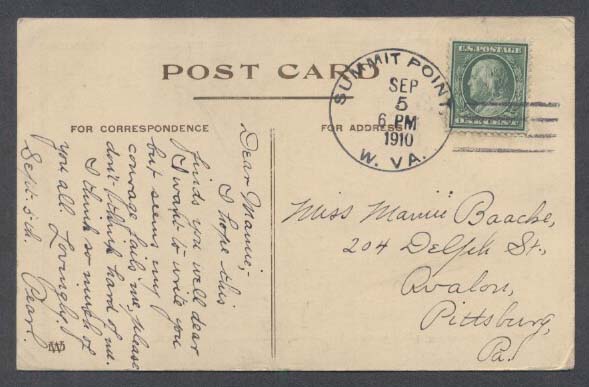 POST CARD
FOR CORRESPONDENCE
FOR ADDRESS
SUMMIT POINT,
SEP
5
6 PM
1910
W. VA.
U.S. POSTAGE
ONE CENT
Dear Mamie,
I hope this
finds you well dear
I want to write you
but seems my
courage fails me, please
don't think hard of me.
I think so much of
you all. Lovingly.
Sept. 5th. Pearl.
Miss Mamie Baacke,
204 Delph St.,
Avalon,
Pittsburg,
Pa.